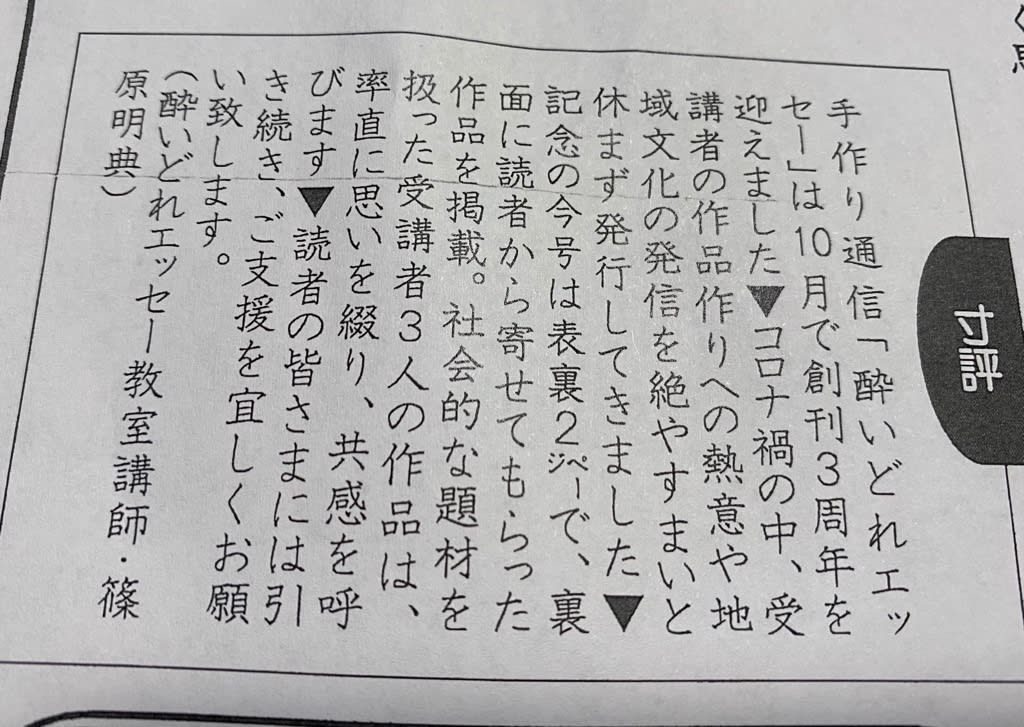 寸評
手作り通信「酔いどれエッ
セー」は10月で創刊3周年を
迎えました▼コロナ禍の中、受
講者の作品作りへの熱意や地
域文化の発信を絶やすまいと
休まず発行してきました▼
記念の今号は表裏2㌻で、裏
面に読者から寄せてもらった
作品を掲載。社会的な題材を
扱った受講者3人の作品は、
率直に思いを綴り、共感を呼
びます▼読者の皆さまには引
き続き、ご支援を宜しくお願
い致します。
(酔いどれエッセー教室講師・篠
原明典)